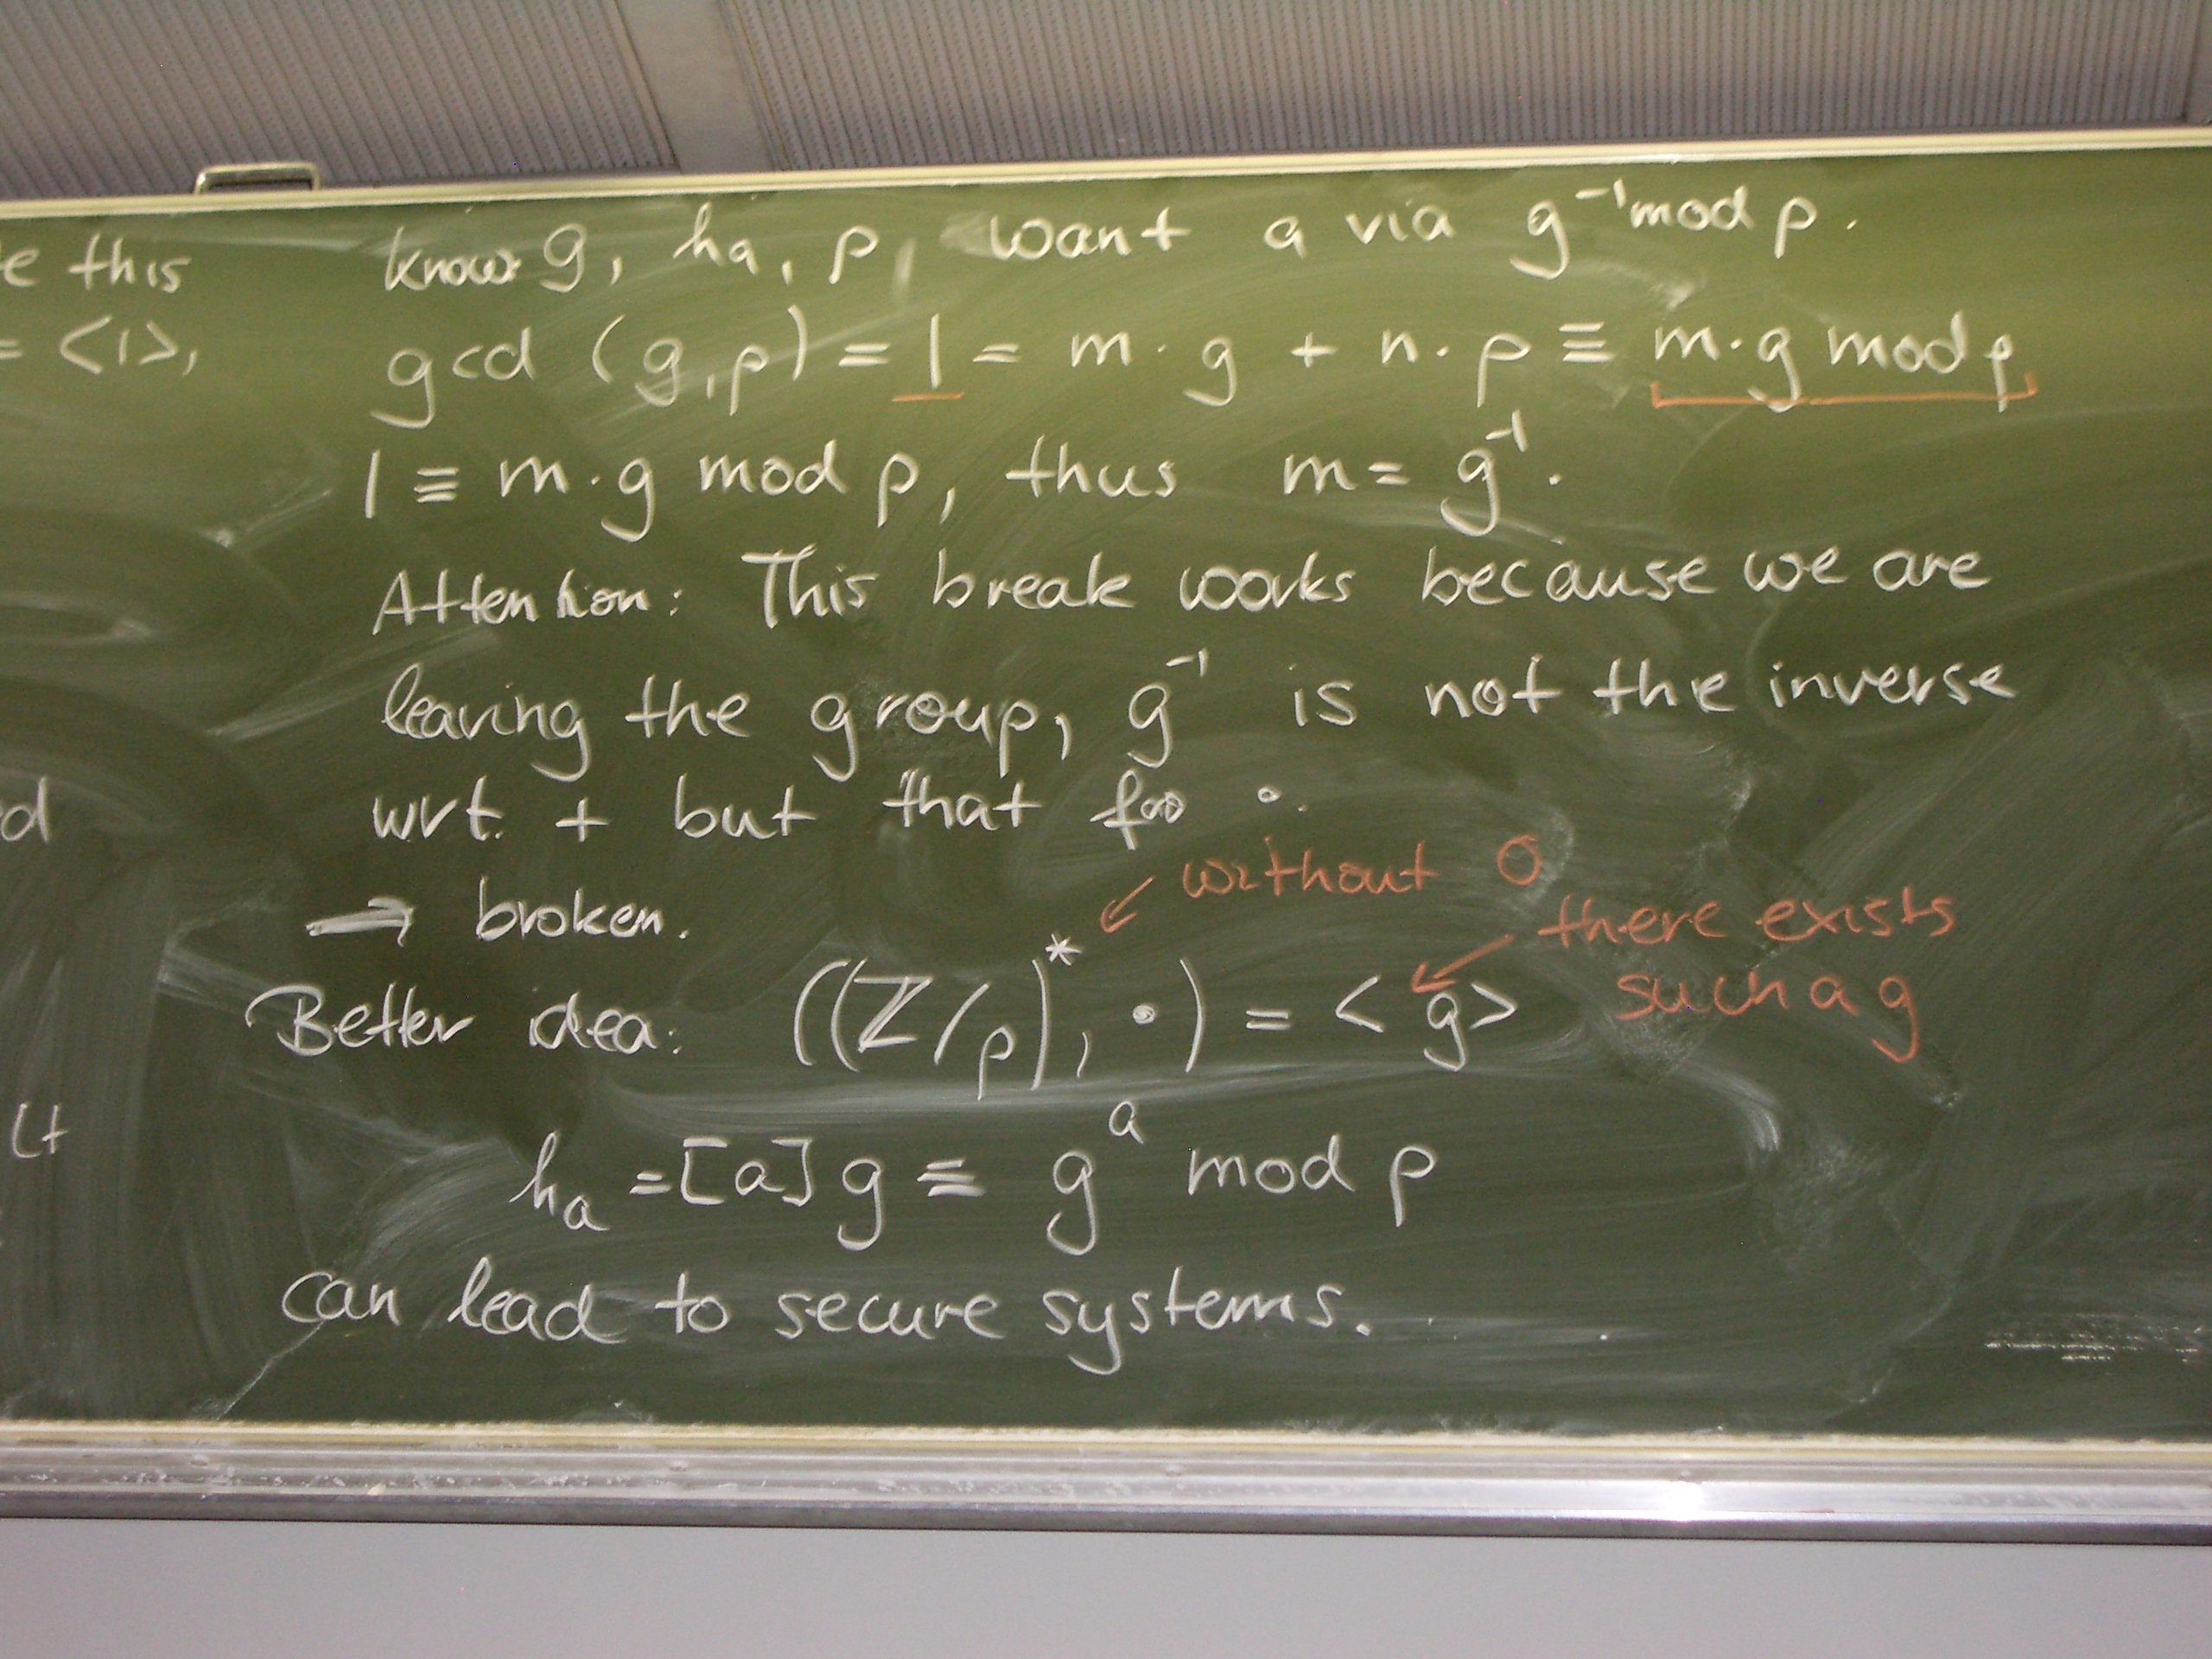 e this
= <1>,
ed
Lt
know g, ha, p, want a via g⁻¹ mod p.
gcd (g,p) = 1 = m · g + n · p ≡ m·g mod p
1 ≡ m·g mod p, thus m = g⁻¹.
Attention: This break works because we are
leaving the group, g⁻¹ is not the inverse
wrt. + but that for ·.
→ broken.
without 0
there exists
such a g
Better idea: ((Z/p)*, ·) = <g>
ha = [a]g ≡ gᵃ mod p
can lead to secure systems.